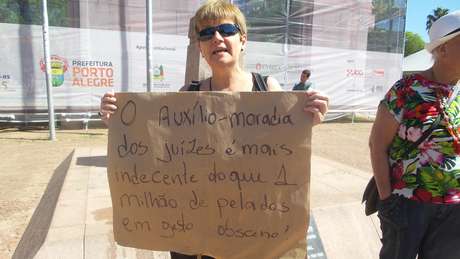 PREFEITURA
PORTO ALEGRE
O Auxílio-moradia
dos juízes é mais
indecente do que 1
milhão de pelados
em gesto obsceno!